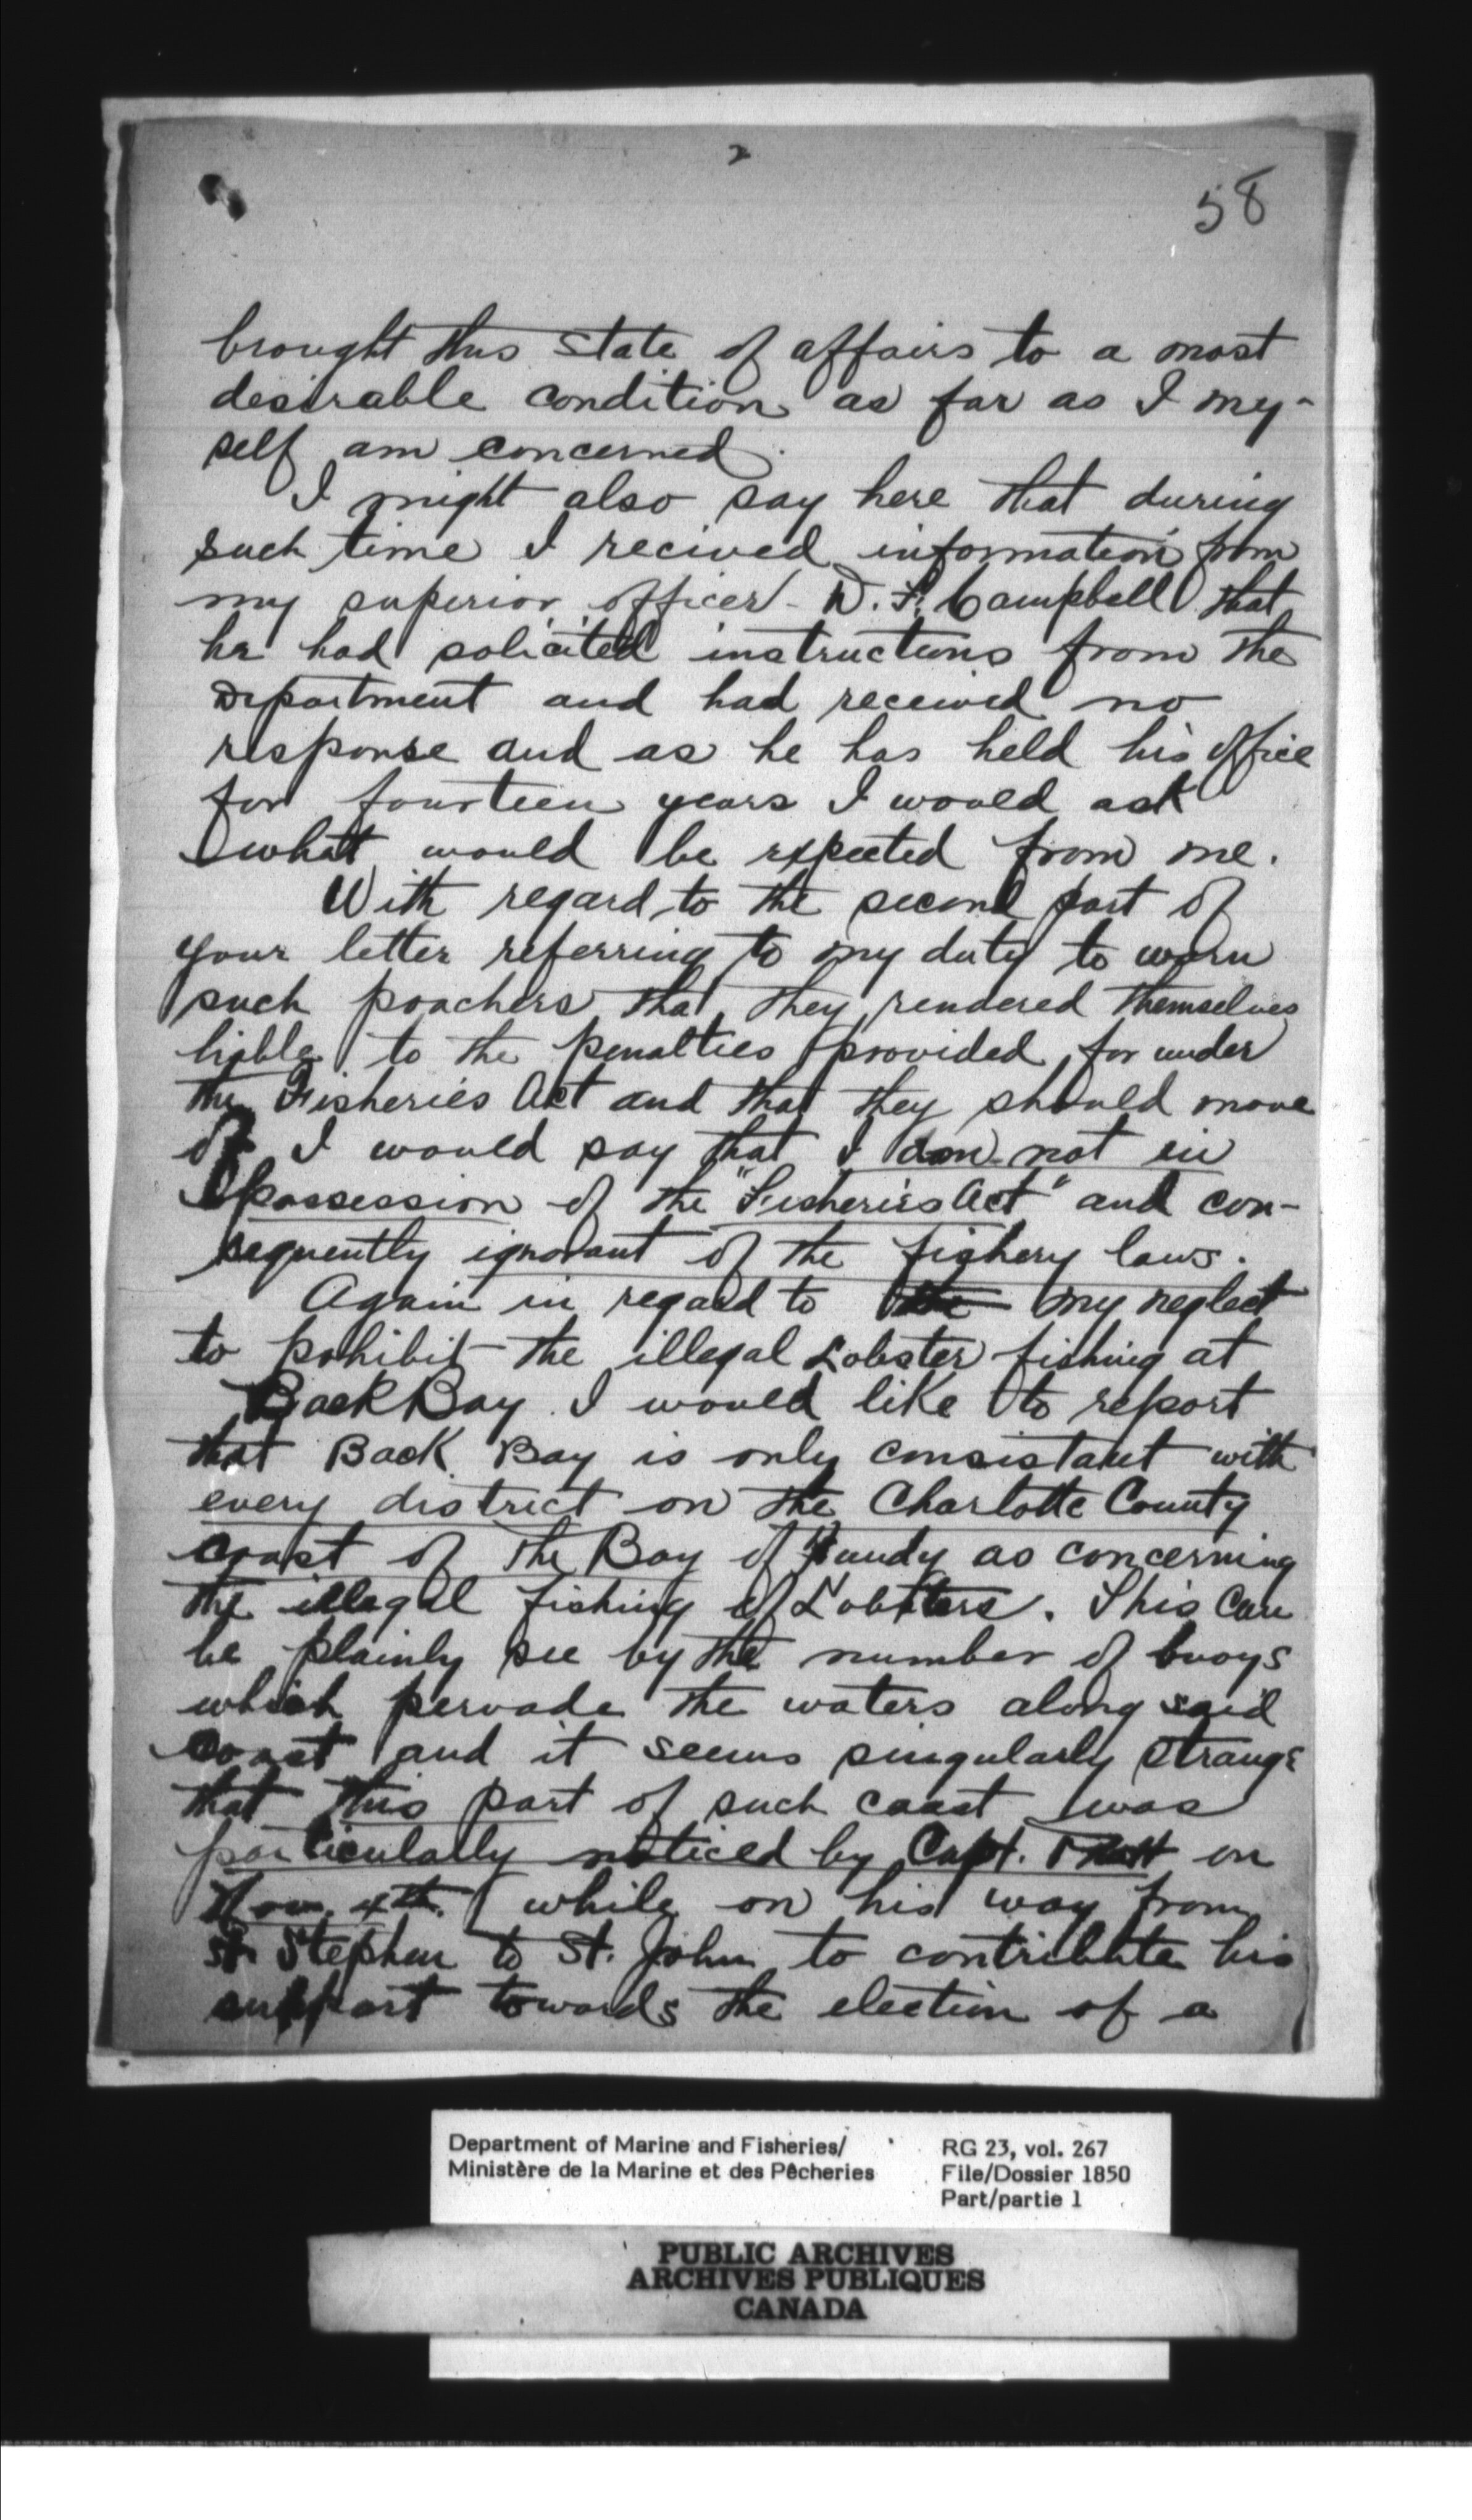 2
58
brought this state of affairs to a most
desirable condition as far as I my-
self am concerned.
I might also say here that during
such time I recived information from
my superior officer - D. F. Campbell that
he had solicited instructions from the
Department and had received no
response and as he has held his office
for fourteen years I would ask
what would be expected from me.
With regard to the second part of
your letter referring to my duty to warn
such poachers that they rendered themselves
liable to the penalties provided for under
the Fisheries Act and that they should move
off I would say that I am not in
possession of the "Fisheries Act" and con-
sequently ignorant of the fishery laws.
Again in regard to the my neglect
to pohibit the illegal Lobster fishing at
Back Bay. I would like to report
that Back Bay is only consistant with
every district on the Charlotte County
coast of the Bay of Fundy as concerning
the illegal fishing of Lobsters. This can
be plainly see by the number of buoys
which pervade the waters along said
coast and it seems singularly strange
that this part of such coast was
particularly noticed by Capt. on
Nov. 4th. while on his way from
St. Stephen to St. John to contribute his
support towards the election of a
Department of Marine and Fisheries/
Ministère de la Marine et des Pêcheries
RG 23, vol. 267
File/Dossier 1850
Part/partie 1
PUBLIC ARCHIVES
ARCHIVES PUBLIQUES
CANADA